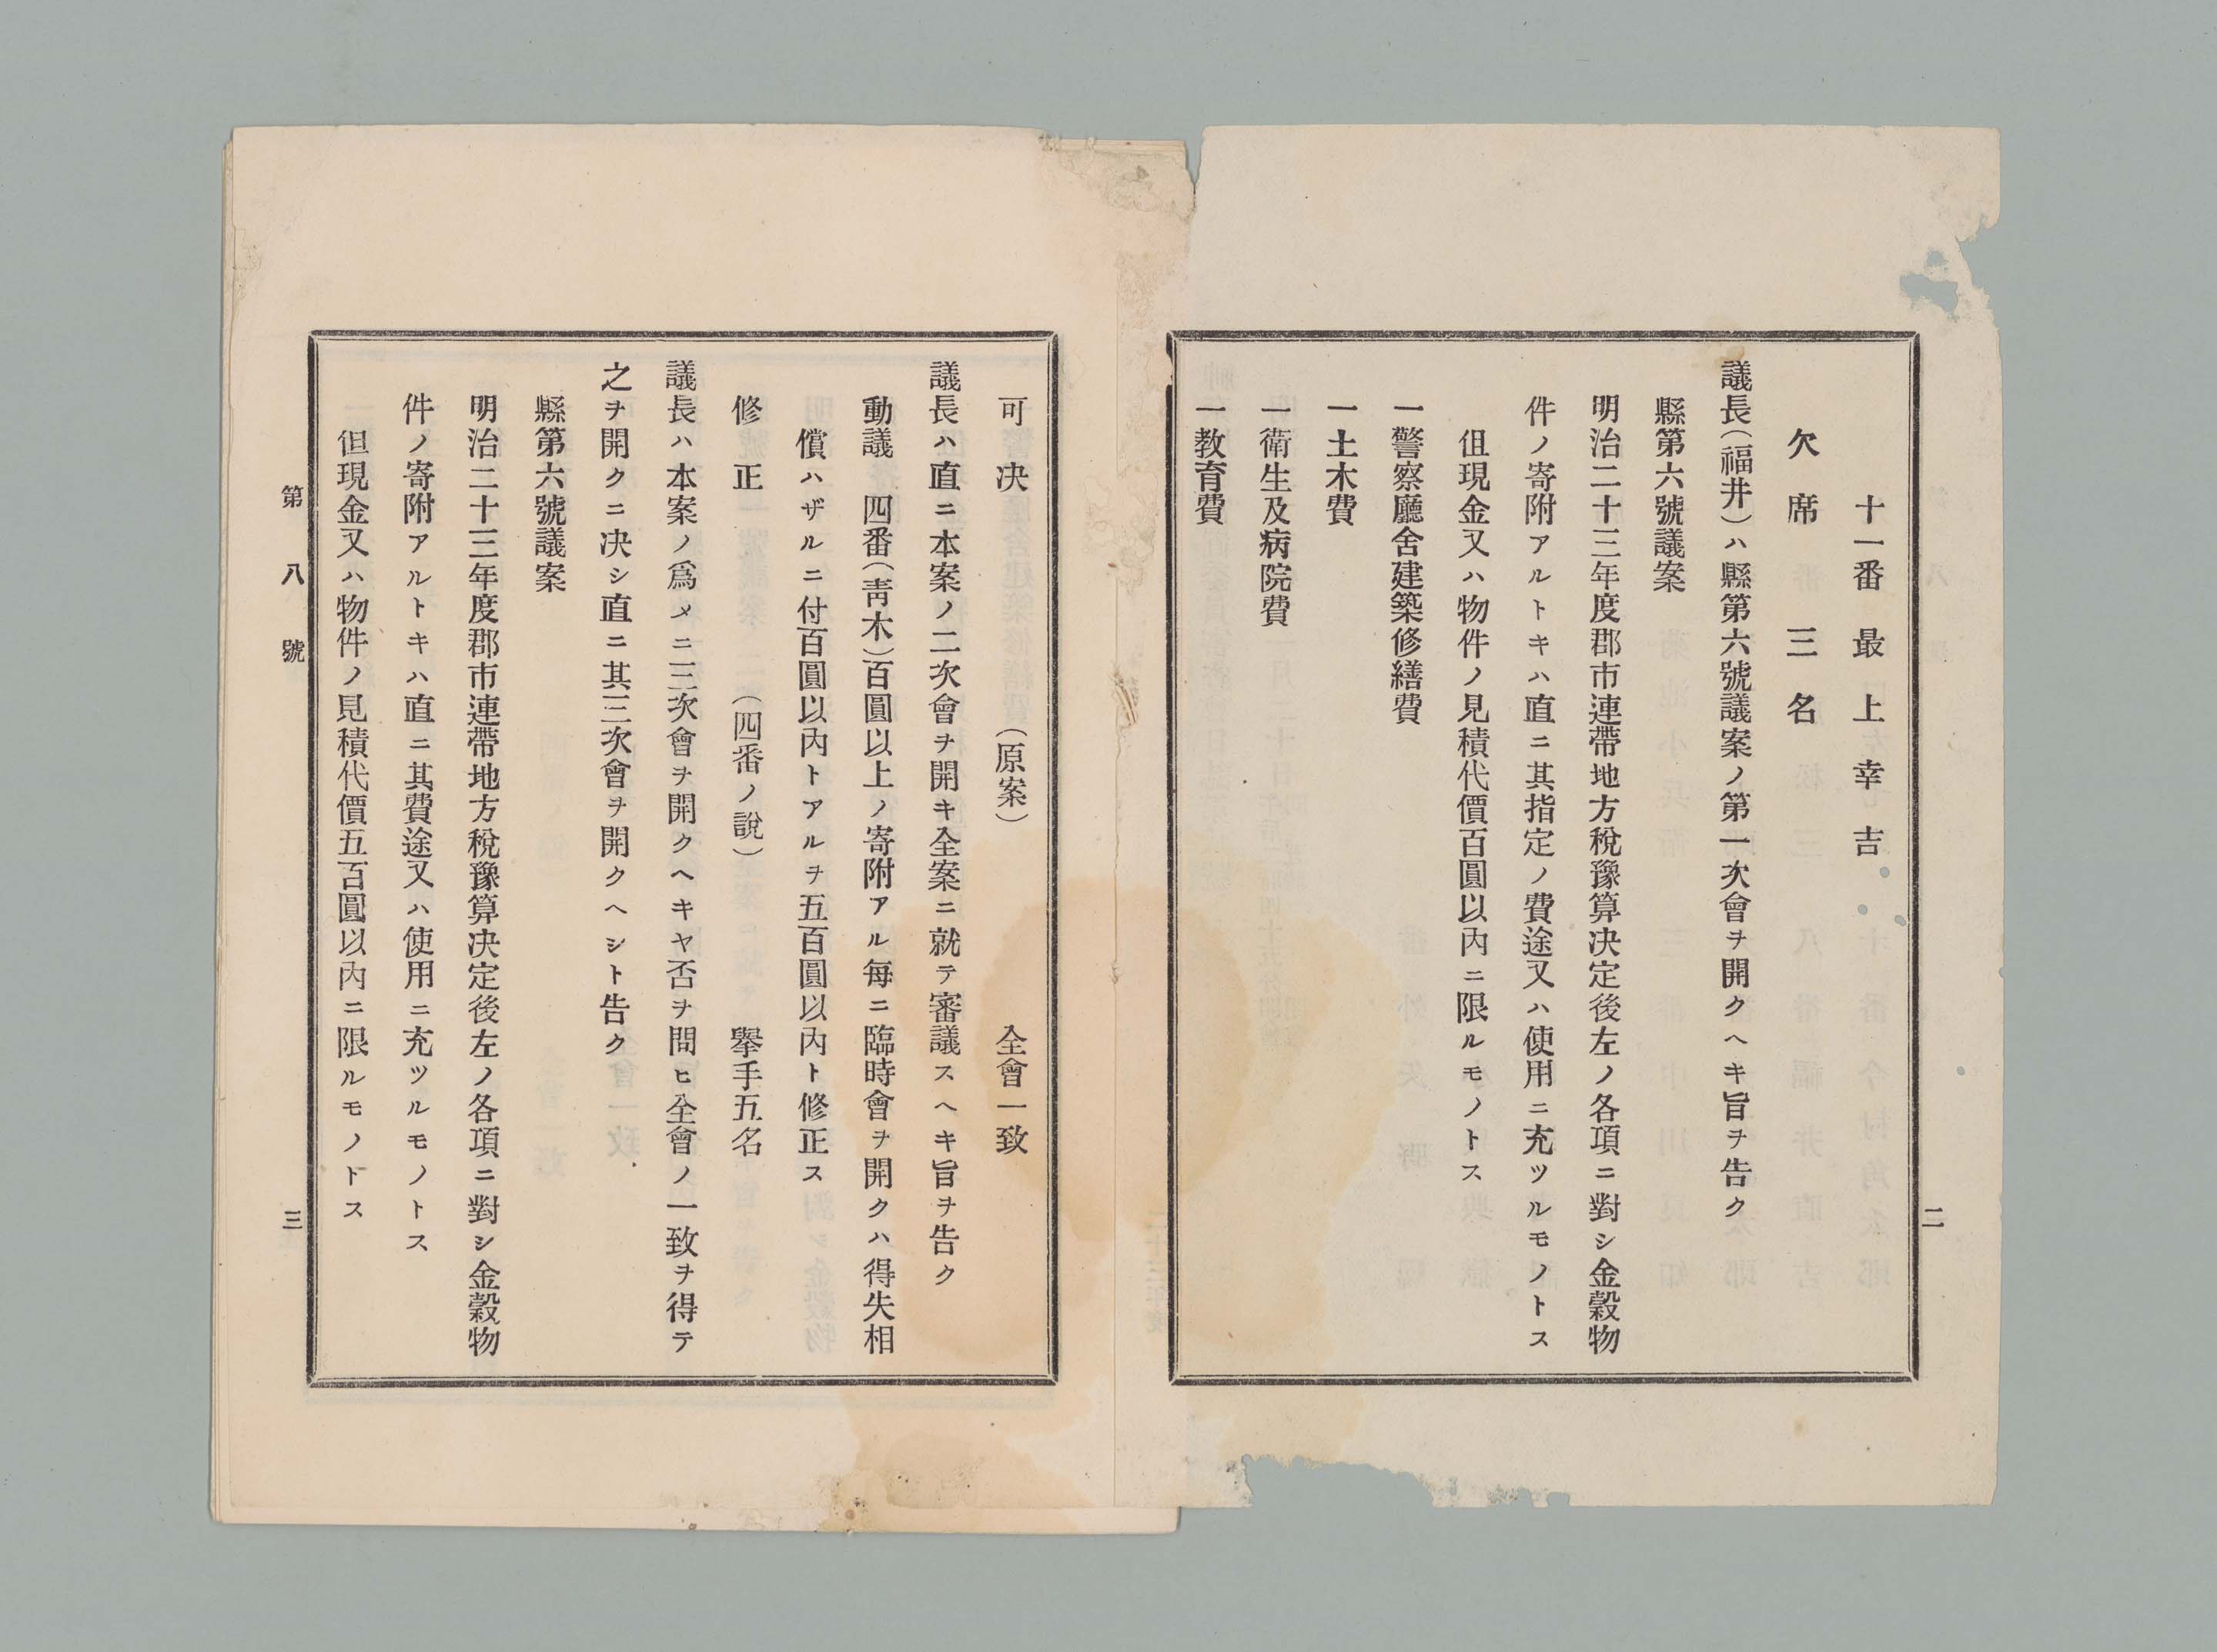 十一番 最上幸吉
欠席 三名
議長(福井)ハ縣第六號議案ノ第一次會ヲ開クヘキ旨ヲ告ク
縣第六號議案
明治二十三年度郡市連帶地方稅豫算决定後左ノ各項ニ對シ金穀物
件ノ寄附アルトキハ直ニ其指定ノ費途又ハ使用ニ充ツルモノトス
伹現金又ハ物件ノ見積代價百圓以內ニ限ルモノトス
一警察廳舍建築修繕費
一土木費
一衛生及病院費
一教育費
二
可决 (原案) 全會一致
議長ハ直ニ本案ノ二次會ヲ開キ全案ニ就テ審議スヘキ旨ヲ告ク
動議 四番(靑木)百圓以上ノ寄附アル每ニ臨時會ヲ開クハ得失相
償ハザルニ付百圓以內トアルヲ五百圓以內ト修正ス
修正 (四番ノ說) 擧手五名
議長ハ本案ノ爲メニ三次會ヲ開クヘキヤ否ヲ問ヒ全會ノ一致ヲ得テ
之ヲ開クニ决シ直ニ其三次會ヲ開クヘシト告ク
縣第六號議案
明治二十三年度郡市連帶地方稅豫算决定後左ノ各項ニ對シ金穀物
件ノ寄附アルトキハ直ニ其費途又ハ使用ニ充ツルモノトス
但現金又ハ物件ノ見積代價五百圓以內ニ限ルモノトス
第八號
三